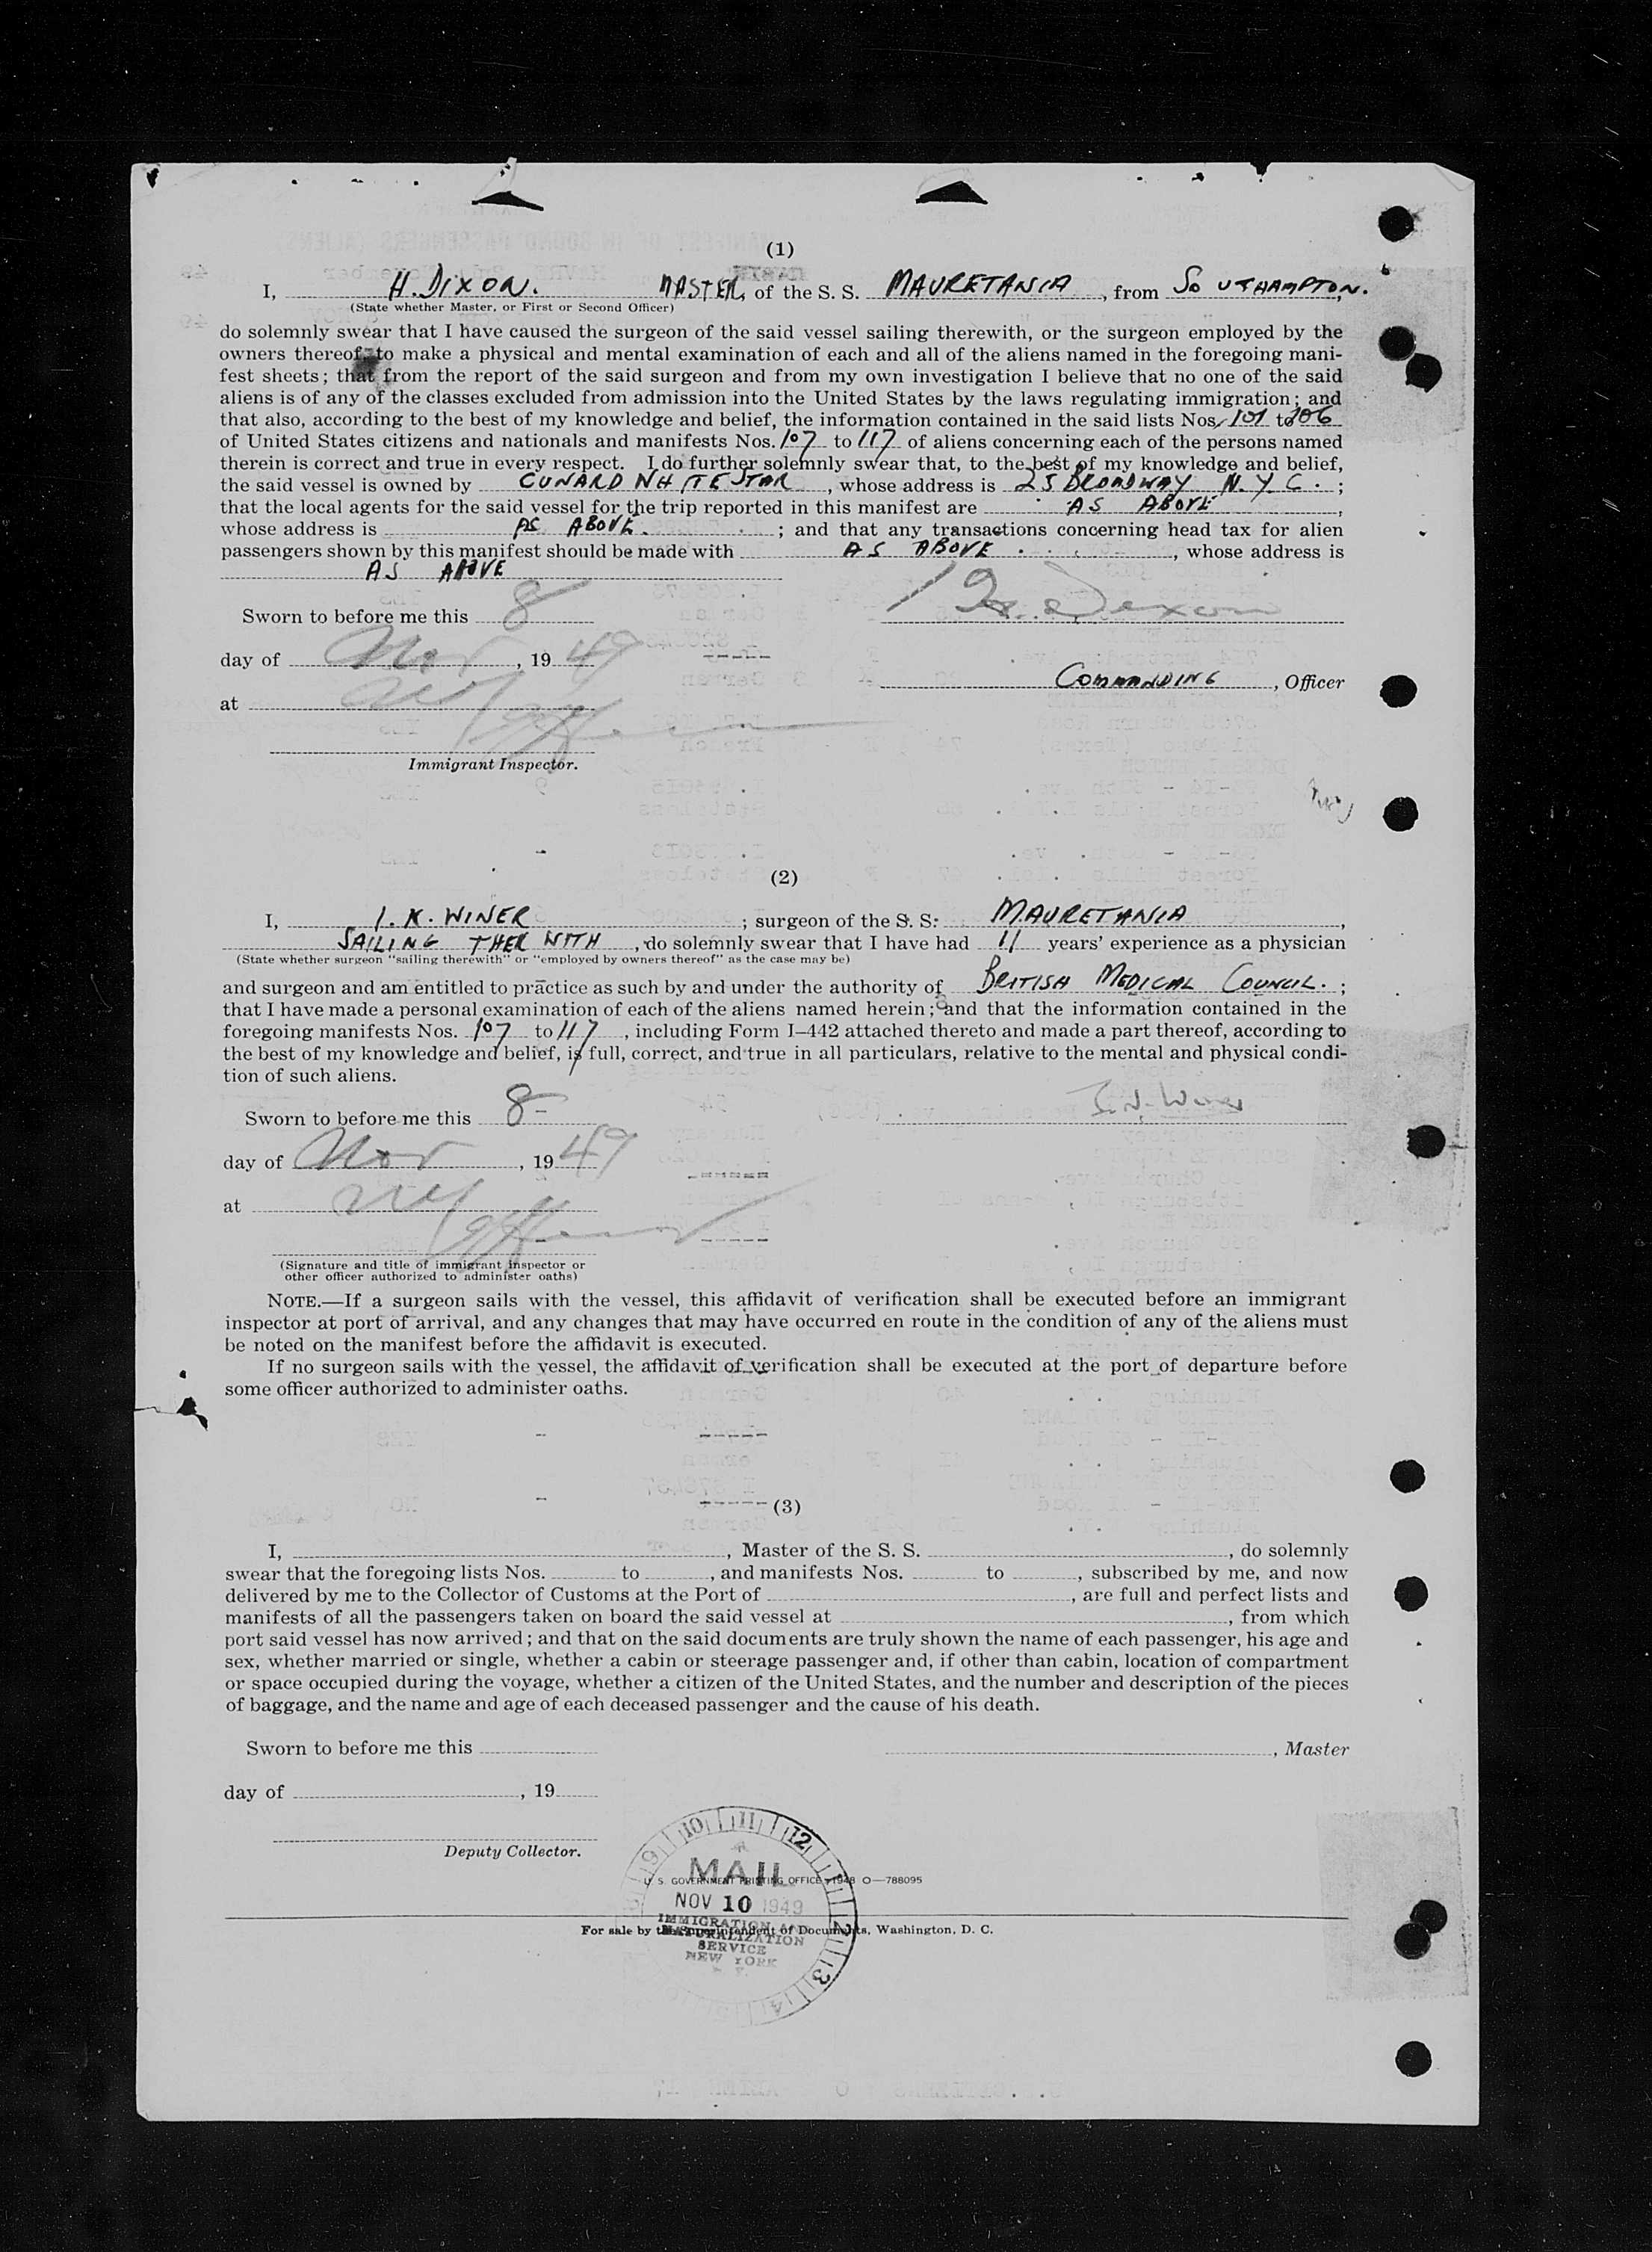 (1)
I, H. DIXON. MASTER, of the S. S. MAURETANIA, from SOUTHAMPTON.
(State whether Master, or First or Second Officer)
do solemnly swear that I have caused the surgeon of the said vessel sailing therewith, or the surgeon employed by the
owners thereof, to make a physical and mental examination of each and all of the aliens named in the foregoing mani-
fest sheets; that from the report of the said surgeon and from my own investigation I believe that no one of the said
aliens is of any of the classes excluded from admission into the United States by the laws regulating immigration; and
that also, according to the best of my knowledge and belief, the information contained in the said lists Nos. 101 to 106
of United States citizens and nationals and manifests Nos. 107 to 117 of aliens concerning each of the persons named
therein is correct and true in every respect. I do further solemnly swear that, to the best of my knowledge and belief,
the said vessel is owned by CUNARD WHITE STAR, whose address is 25 BROADWAY N.Y.C. ;
that the local agents for the said vessel for the trip reported in this manifest are AS ABOVE,
whose address is AS ABOVE. ; and that any transactions concerning head tax for alien
passengers shown by this manifest should be made with AS ABOVE, whose address is
AS ABOVE
Sworn to before me this 8
day of Nov, 19 49
Dixon
COMMANDING, Officer
at
Immigrant Inspector.
(2)
I, I. K. WINER ; surgeon of the S. S. MAURETANIA,
SAILING THER WITH, do solemnly swear that I have had 11 years' experience as a physician
(State whether surgeon "sailing therewith" or "employed by owners thereof" as the case may be)
and surgeon and am entitled to practice as such by and under the authority of BRITISH MEDICAL COUNCIL. ;
that I have made a personal examination of each of the aliens named herein; and that the information contained in the
foregoing manifests Nos. 107 to 117, including Form I-442 attached thereto and made a part thereof, according to
the best of my knowledge and belief, is full, correct, and true in all particulars, relative to the mental and physical condi-
tion of such aliens.
Sworn to before me this 8
day of Nov, 19 49
at
(Signature and title of immigrant inspector or
other officer authorized to administer oaths)
NOTE.—If a surgeon sails with the vessel, this affidavit of verification shall be executed before an immigrant
inspector at port of arrival, and any changes that may have occurred en route in the condition of any of the aliens must
be noted on the manifest before the affidavit is executed.
If no surgeon sails with the vessel, the affidavit of verification shall be executed at the port of departure before
some officer authorized to administer oaths.
(3)
I, , Master of the S. S. , do solemnly
swear that the foregoing lists Nos. to , and manifests Nos. to , subscribed by me, and now
delivered by me to the Collector of Customs at the Port of , are full and perfect lists and
manifests of all the passengers taken on board the said vessel at , from which
port said vessel has now arrived; and that on the said documents are truly shown the name of each passenger, his age and
sex, whether married or single, whether a cabin or steerage passenger and, if other than cabin, location of compartment
or space occupied during the voyage, whether a citizen of the United States, and the number and description of the pieces
of baggage, and the name and age of each deceased passenger and the cause of his death.
Sworn to before me this , Master
day of , 19
Deputy Collector.
9 10 11 12 1 2 3 4
MAIL
U. S. GOVERNMENT PRINTING OFFICE 1948 O—788095
NOV 10 1949
For sale by the Superintendent of Documents, Washington, D. C.
IMMIGRATION AND
NATURALIZATION
SERVICE
NEW YORK